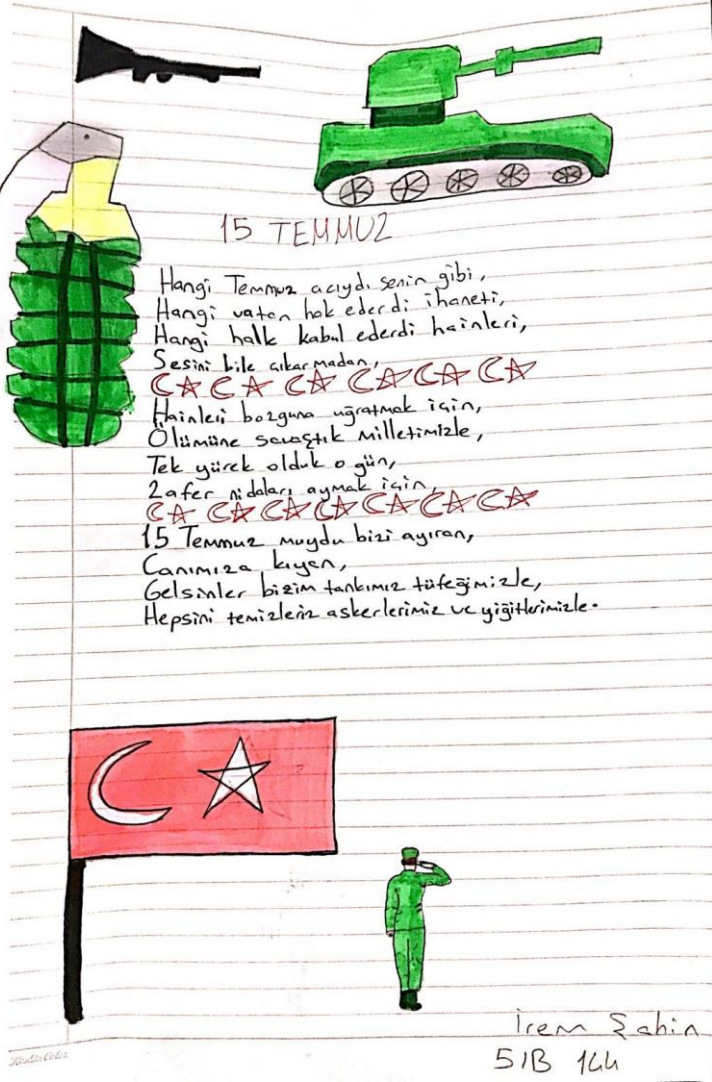 15 TEMMUZ
Hangi Temmuz acıydı senin gibi,
Hangi vatan hak ederdi ihaneti,
Hangi halk kabul ederdi hainleri,
Sesini bile çıkarmadan,
Hainleri bozguna uğratmak için,
Ölümüne savaştık milletimizle,
Tek yürek olduk o gün,
Zafer nidaları aymak için,
15 Temmuz muydu bizi ayıran,
Canımıza kıyan,
Gelsinler bizim tankımız tüfeğimizle,
Hepsini temizleriz askerlerimiz ve yiğitlerimizle.
İrem Şahin
5/B 144